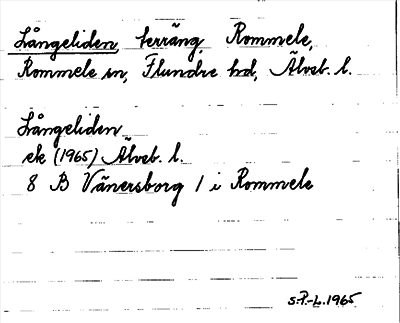 Långeliden, terräng, Rommele,
Rommele sn, Flundre hd, Älvsb. l.
Långeliden
ek (1965) Älvsb. l.
8 B Vänersborg 1 i Rommele
S.P.-L. 1965